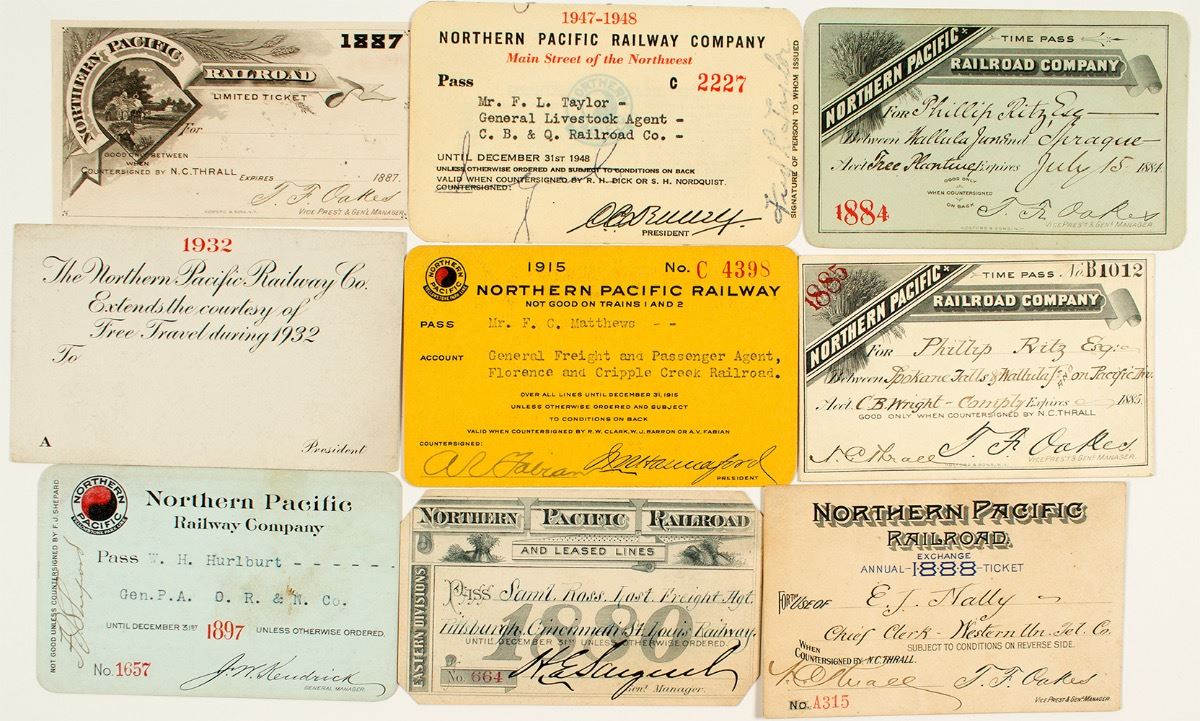 NORTHERN PACIFIC
RAILROAD
1887
LIMITED TICKET
For
GOOD ONLY BETWEEN
WHEN
COUNTERSIGNED BY N.C. THRALL EXPIRES 1887.
T. F. Oakes
VICE PREST & GENL MANAGER
1947-1948
NORTHERN PACIFIC RAILWAY COMPANY
Main Street of the Northwest
Pass C 2227
Mr. F. L. Taylor -
General Livestock Agent -
C. B. & Q. Railroad Co. -
UNTIL DECEMBER 31ST 1948
UNLESS OTHERWISE ORDERED AND SUBJECT TO CONDITIONS ON BACK
VALID WHEN COUNTERSIGNED BY R. H. DICK OR S. H. NORDQUIST.
COUNTERSIGNED:
PRESIDENT
SIGNATURE OF PERSON TO WHOM ISSUED
NORTHERN PACIFIC
TIME PASS
RAILROAD COMPANY
For Phillip Ritz Esq
Between Wallula Junc and Sprague
Acct Tree Planting Expires July 15 1884
GOOD ONLY
WHEN COUNTERSIGNED
ON BACK
1884
T. F. Oakes
VICE PREST & GENL MANAGER
1932
The Northern Pacific Railway Co.
Extends the courtesy of
Free Travel during 1932
To
A
President
NORTHERN PACIFIC
1915 No. C 4398
NORTHERN PACIFIC RAILWAY
NOT GOOD ON TRAINS 1 AND 2
PASS Mr. F. C. Matthews - -
ACCOUNT General Freight and Passenger Agent,
Florence and Cripple Creek Railroad.
OVER ALL LINES UNTIL DECEMBER 31, 1915
UNLESS OTHERWISE ORDERED AND SUBJECT
TO CONDITIONS ON BACK
VALID WHEN COUNTERSIGNED BY R. W. CLARK, W. J. BARRON OR A.V. FABIAN
COUNTERSIGNED:
A V Fabian J M Hannaford
PRESIDENT
1885
NORTHERN PACIFIC
TIME PASS. No. B1012
RAILROAD COMPANY
FOR Phillip Ritz Esq:
Between Spokane Falls & Wallula on Pacific Div.
Acct C. B. Wright - Comply Expires 1885.
GOOD ONLY WHEN COUNTERSIGNED BY N.C. THRALL
N. C. Thrall T. F. Oakes
VICE PREST & GENL MANAGER
NOT GOOD UNLESS COUNTERSIGNED BY F. J. SHEPARD
F J Shepard
NORTHERN PACIFIC
YELLOWSTONE PARK LINE
Northern Pacific
Railway Company
Pass W. H. Hurlburt - - - - - -
Gen. P. A. O. R. & N. Co.
UNTIL DECEMBER 31ST 1897 UNLESS OTHERWISE ORDERED.
No. 1657
J. W. Kendrick
GENERAL MANAGER.
NORTHERN PACIFIC RAILROAD
AND LEASED LINES
EASTERN DIVISIONS
Pass Saml. Ross, East. Freight Agt.
1880
Pittsburgh, Cincinnati St. Louis Railway.
UNTIL DECEMBER 31ST UNLESS OTHERWISE ORDERED.
No. 664
H. E. Sargent
Genl. Manager.
NORTHERN PACIFIC
RAILROAD.
EXCHANGE
ANNUAL-1888-TICKET
FOR THE USE OF E. J. Nally
Chief Clerk - Western Un. Tel. Co.
SUBJECT TO CONDITIONS ON REVERSE SIDE.
WHEN
COUNTERSIGNED BY N.C. THRALL.
N. C. Thrall T. F. Oakes
No. A315
VICE PREST & GENL MANAGER.